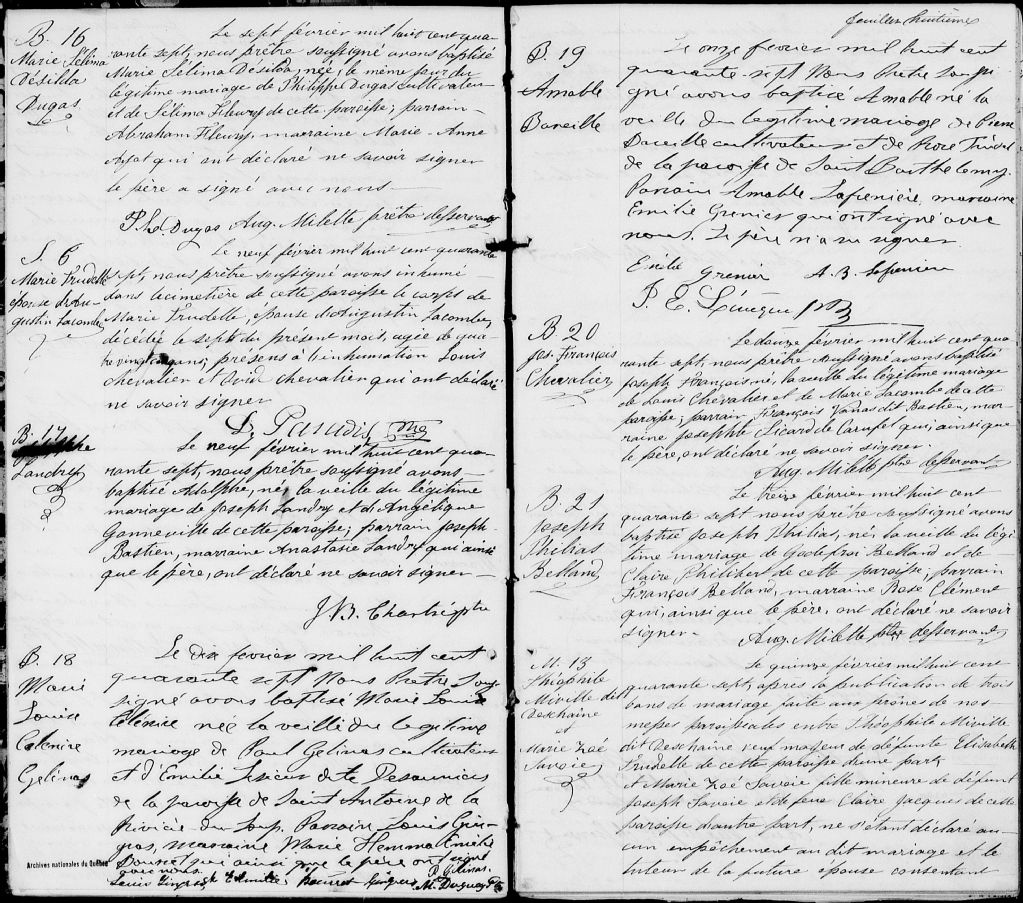 B. 16
Marie Sélima
Désilda
Dugas
Le sept février mil huit cent qua-
rante sept, nous prêtre soussigné avons baptisé
Marie Sélima Désilda, née, le même jour du
légitime mariage de Philippe Dugas cultivateur
et de Sélima Fleury de cette paroisse; parrain
Abraham Fleury, marraine Marie-Anne
Ayot qui ont déclaré ne savoir signer
le père a signé avec nous.
Ph. Dugas Aug. Milette prêtre desservant
S. 6
Marie Trudelle
épouse d'Au-
gustin Lacombe
Le neuf février mil huit cent quarante
sept, nous prêtre soussigné avons inhumé
dans le cimetière de cette paroisse le corps de
Marie Trudelle, épouse d'Augustin Lacombe,
décédée le sept du présent mois, agée de qua-
tre vingt ans; présens à l'inhumation Louis
Chevalier et David Chevalier qui ont déclaré
ne savoir signer
L. Paradis
B. 17
Adolphe
Landry
Le neuf février mil huit cent qua-
rante sept, nous prêtre soussigné avons
baptisé Adolphe, né, la veille du légitime
mariage de Joseph Landry et d'Angélique
Gonneville de cette paroisse; parrain Joseph
Bastien, marraine Anastasie Landry qui ainsi
que le père, ont déclaré ne savoir signer
J. B. Chartré ptre
B. 18
Marie
Louise
Célénire
Gélinas
Le dix fevrier mil huit cent
quarante sept Nous Pretre Sous-
signé avons baptisé Marie Louise
Célénire née la veille du legitime
mariage de Paul Gelinas cultivateur
et d'Emilie Lesieur dite Desaunier
de la paroisse de Saint Antoine de la
Rivière du Loup. Parrain Louis Gin-
gras, marraine Marie Hemma Emilie
Dounet qui ainsi que le père ont signé
avec nous. P. Gélinas.
Louis Gingras
Archives nationales du Québec
feuillet huitième
B. 19
Amable
Bareille
Le onze fevrier mil huit cent
quarante-sept Nous Pretre soussi
gné avons baptisé Amable né la
veille du legitime mariage de Pierre
Bareille cultivateur et de Rose Trudel
de la paroisse de Saint Barthelemy.
Parrain Amable Lafrenière, marraine
Emilie Grenier qui ont signé avec
nous. Le père n'a su signer
Emilie Grenier A. B. Lafreniere
B 20
Jos. François
Chevalier
Le douze février mil huit cent qua-
rante sept, nous prêtre soussigné avons baptisé
Joseph François né, la veille du légitime mariage
de Louis Chevalier et de Marie Lacombe de cette
paroisse; parrain François Vanas dit Bastien, mar-
raine Josephte Sicard de Carufel qui, ainsi que
le père, ont déclaré ne savoir signer.
Aug. Milette ptre desservant
B 21
Joseph
Philias
Belland
Le treize février mil huit cent
quarante sept nous prêtre soussigné avons
baptisé Joseph Philias, né, la veille du légi-
time mariage de Godefroi Belland et de
Claire Philibert de cette paroisse; parrain
François Belland, marraine Rose Clément
qui, ainsi que le père, ont déclaré ne savoir
signer.
Aug. Milette ptre desservant
M. 13
Théophile
Miville dit
Deschaine
et
Marie Zoé
Savoie
Le quinze février mil huit cent
quarante sept, après la publication de trois
bans de mariage faite aux prônes de nos
messes paroissiales entre Théophile Miville
dit Deschaine veuf majeur de défunte Elisabeth
Trudelle de cette paroisse d'une part,
et Marie Zoé Savoie fille mineure de défunt
Joseph Savoie et de feue Claire Jacques de cette
paroisse d'autre part, ne s'étant déclaré au-
cun empêchement au dit mariage et le
tuteur de la future épouse consentant